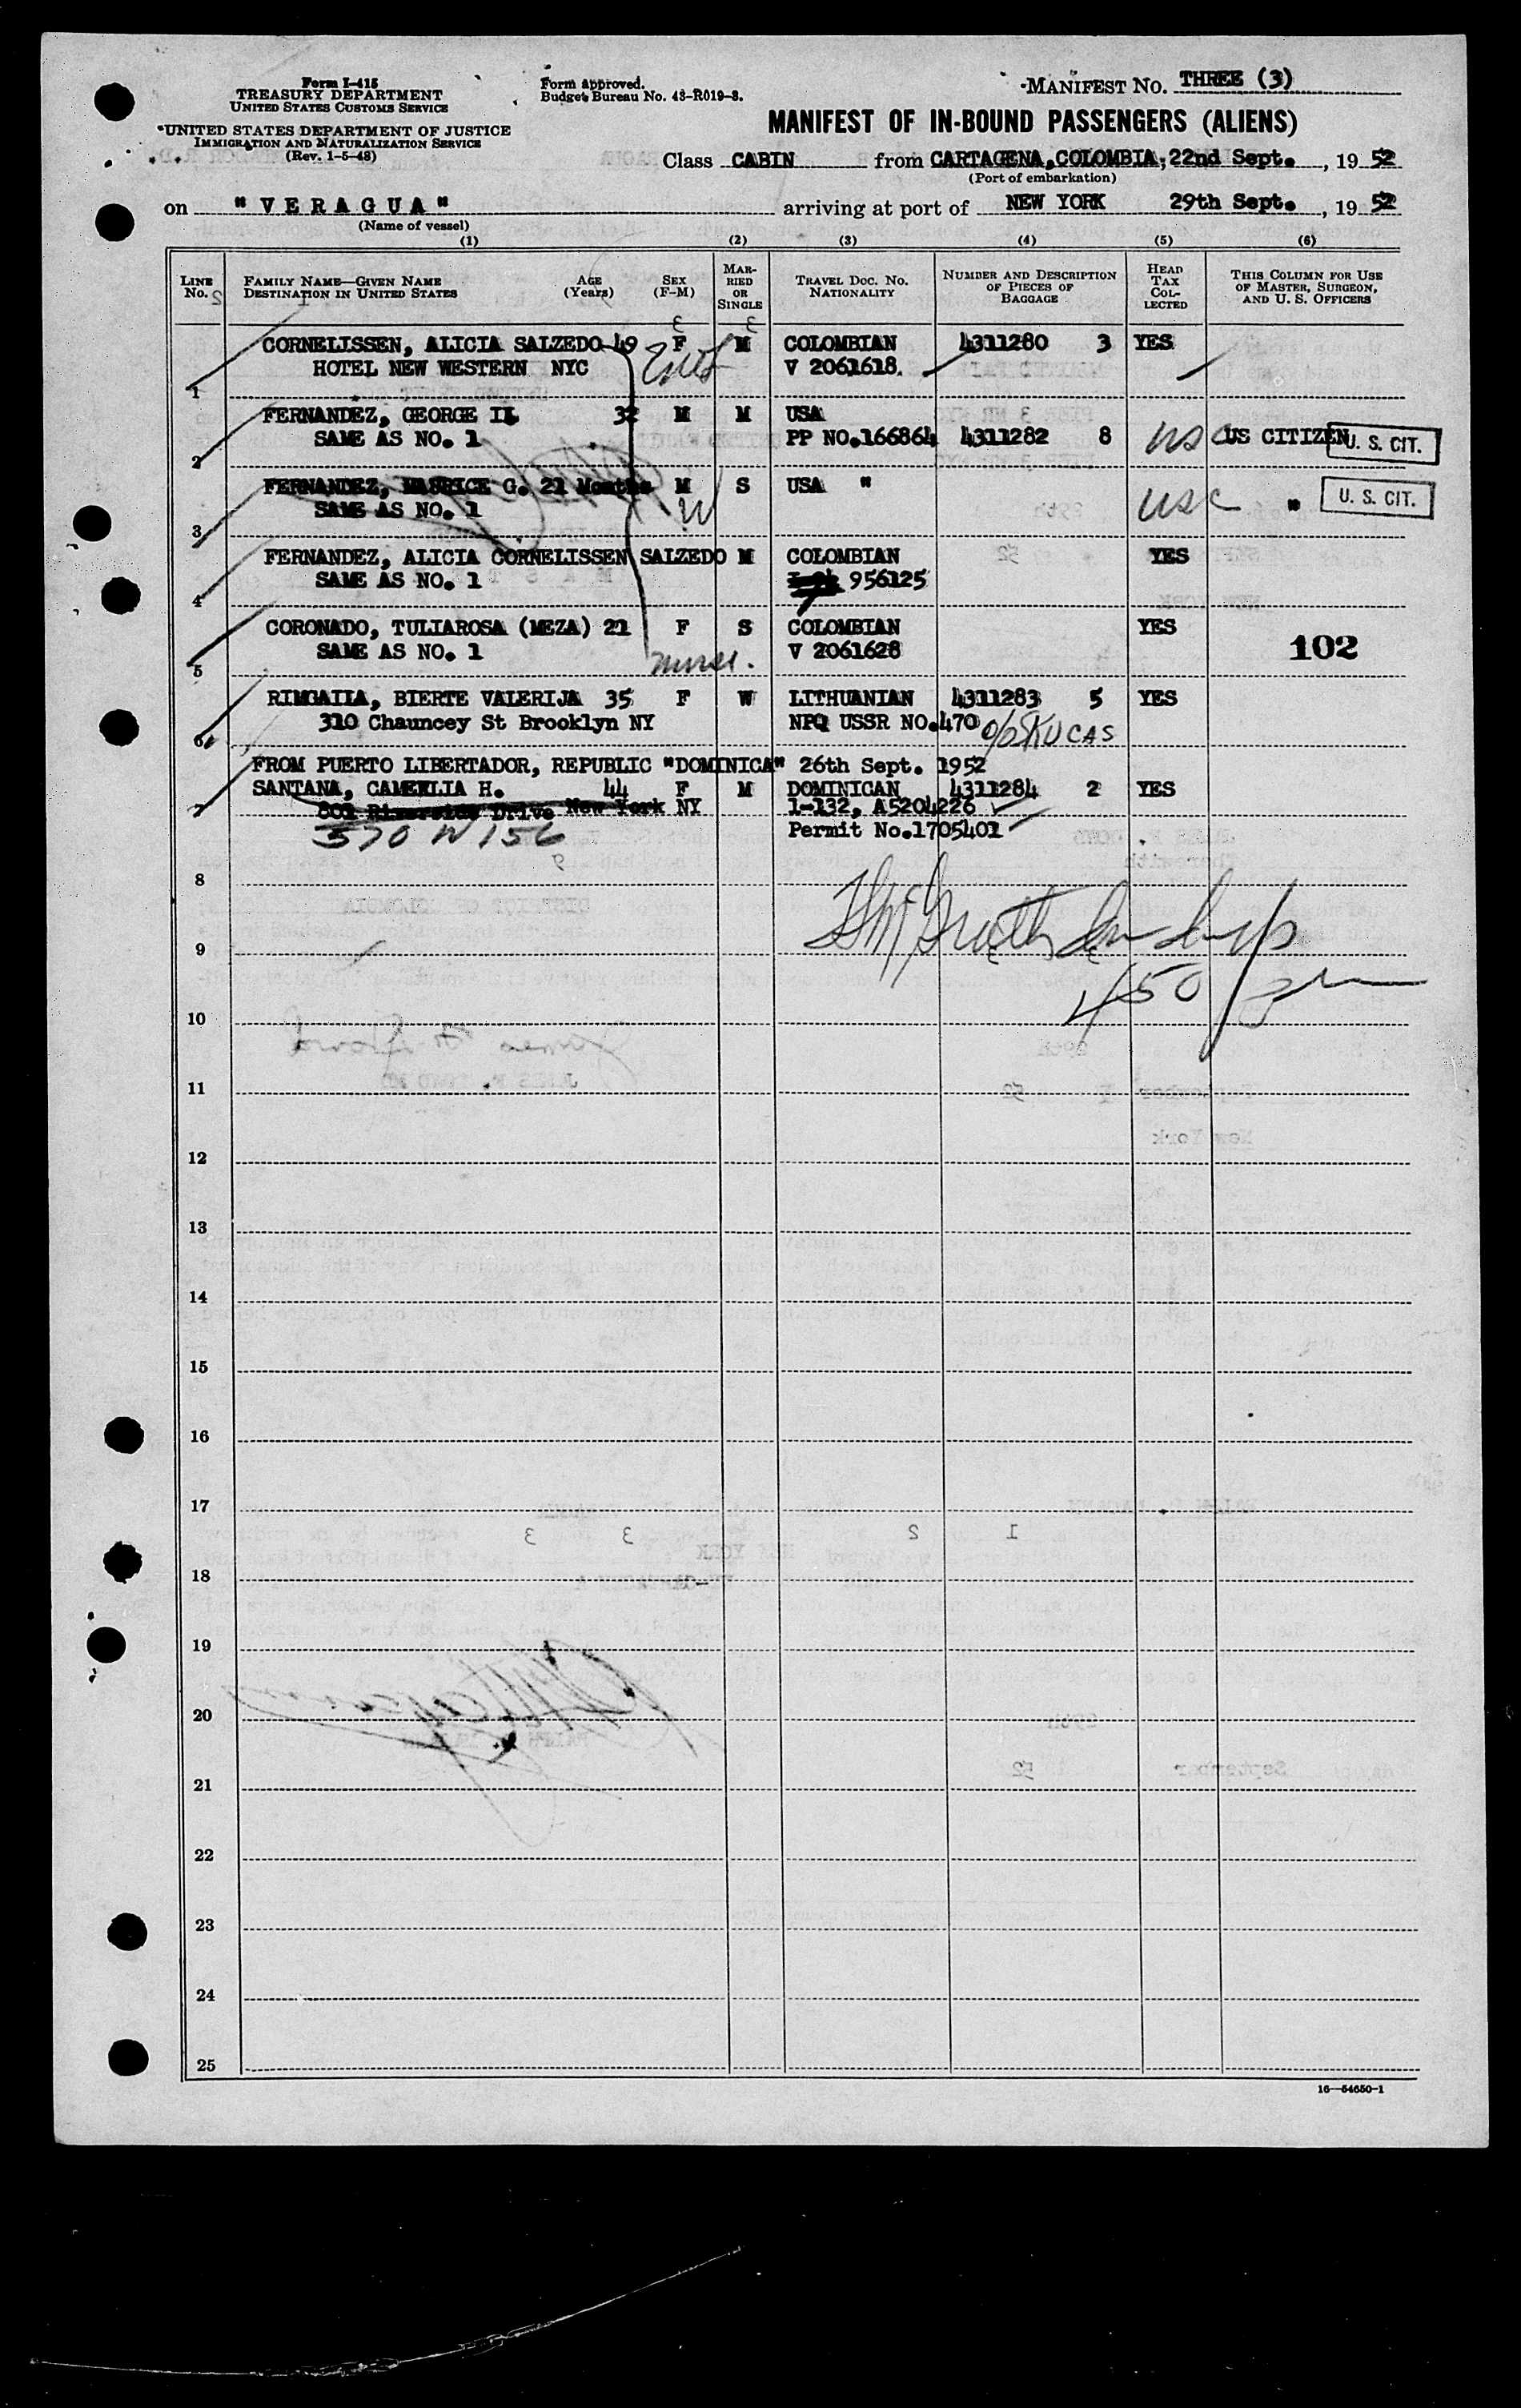 Form I-415
TREASURY DEPARTMENT
UNITED STATES CUSTOMS SERVICE
UNITED STATES DEPARTMENT OF JUSTICE
IMMIGRATION AND NATURALIZATION SERVICE
(Rev. 1-5-48)
Form approved.
Budget Bureau No. 43-R019-3.
MANIFEST NO. THREE (3)
MANIFEST OF IN-BOUND PASSENGERS (ALIENS)
Class CABIN from CARTAGENA, COLOMBIA, 22nd Sept., 19 52
(Port of embarkation)
on "VERAGUA" arriving at port of NEW YORK 29th Sept., 19 52
(Name of vessel)
(1) (2) (3) (4) (5) (6)
LINE No. FAMILY NAME—GIVEN NAME DESTINATION IN UNITED STATES AGE (Years) SEX (F-M) MARRIED OR SINGLE TRAVEL DOC. NO. NATIONALITY NUMBER AND DESCRIPTION OF PIECES OF BAGGAGE HEAD TAX COLLECTED THIS COLUMN FOR USE OF MASTER, SURGEON, AND U. S. OFFICERS
CORNELISSEN, ALICIA SALZEDO 49 F M COLOMBIAN 4311280 3 YES
1 HOTEL NEW WESTERN NYC V 2061618
FERNANDEZ, GEORGE II 32 M M USA
2 SAME AS NO. 1 PP NO.166864 4311282 8 USC US CITIZEN U. S. CIT.
FERNANDEZ, MAURICE G. 21 Months M S USA "
3 SAME AS NO. 1 USC " U. S. CIT.
FERNANDEZ, ALICIA CORNELISSEN SALZEDO M COLOMBIAN YES
4 SAME AS NO. 1 956125
CORONADO, TULIAROSA (MEZA) 21 F S COLOMBIAN YES
5 SAME AS NO. 1 nurse. V 2061628 102
RIMGAILA, BIERTE VALERIJA 35 F W LITHUANIAN 4311283 5 YES
6 310 Chauncey St Brooklyn NY NPQ USSR NO.470 KUCAS
FROM PUERTO LIBERTADOR, REPUBLIC "DOMINICA" 26th Sept. 1952
SANTANA, CAMERLIA H. 44 F M DOMINICAN 4311284 2 YES
7 801 Riverside Drive New York NY 1-132, A5204226
570 W 156 Permit No.1705401
8
9
450
10
11
12
13
14
15
16
17
18
19
20
21
22
23
24
25
16—54650-1